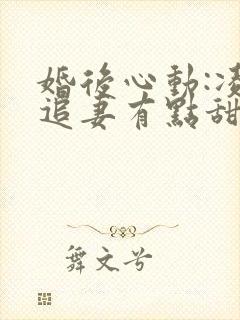 婚後心動:凌
追妻有點甜
舞文兮